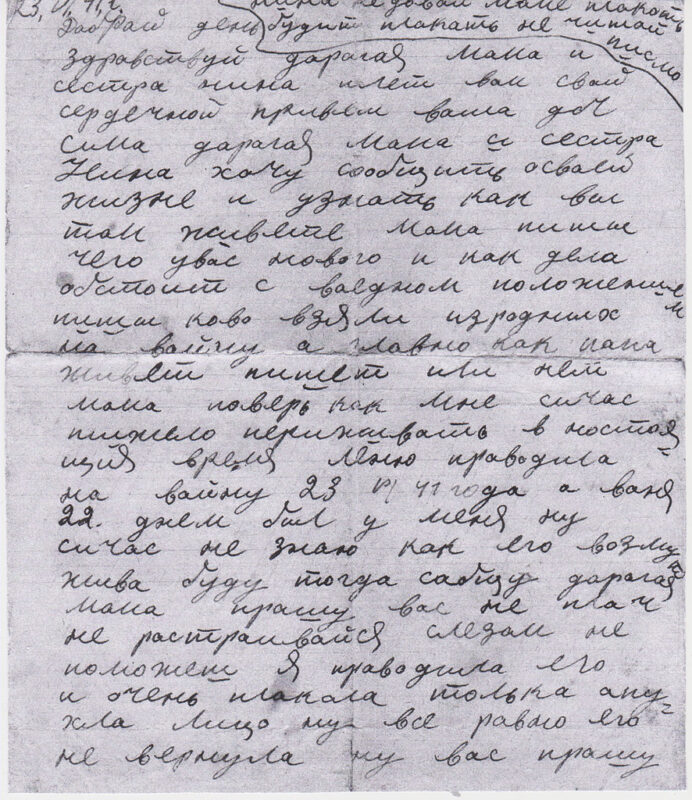 23, VI, 41 г. нина не довай маме плакать
Добрай день будит плакать не читай писмо
Здравствуй дарагая мама и
сестра нина шлет вам свой
сердечной привет ваша доч
сима дарагая мама и сестра
Нина хочу сообщить освоей
жизне и узнать как вы
там живете мама пиши
чего увас нового и как дела
обстоит с воедном положением
пиши ково взяли изродных
на вайну а главно как папа
живет пишет или нет
мама поверь как мне сичас
тижело периживать в ностоя
щия время Лёню праводила
на вайну 23 VI 41 года а ваня
22. днем был у меня ну
сичас не знаю как его возмут
жива буду тогда сабщу дарагая
мама прашу вас не плач
не растраивайся слезам не
поможеш я праводила его
и очень плакала толька опу
хла лицо ну все равно его
не вернула ну вас прашу